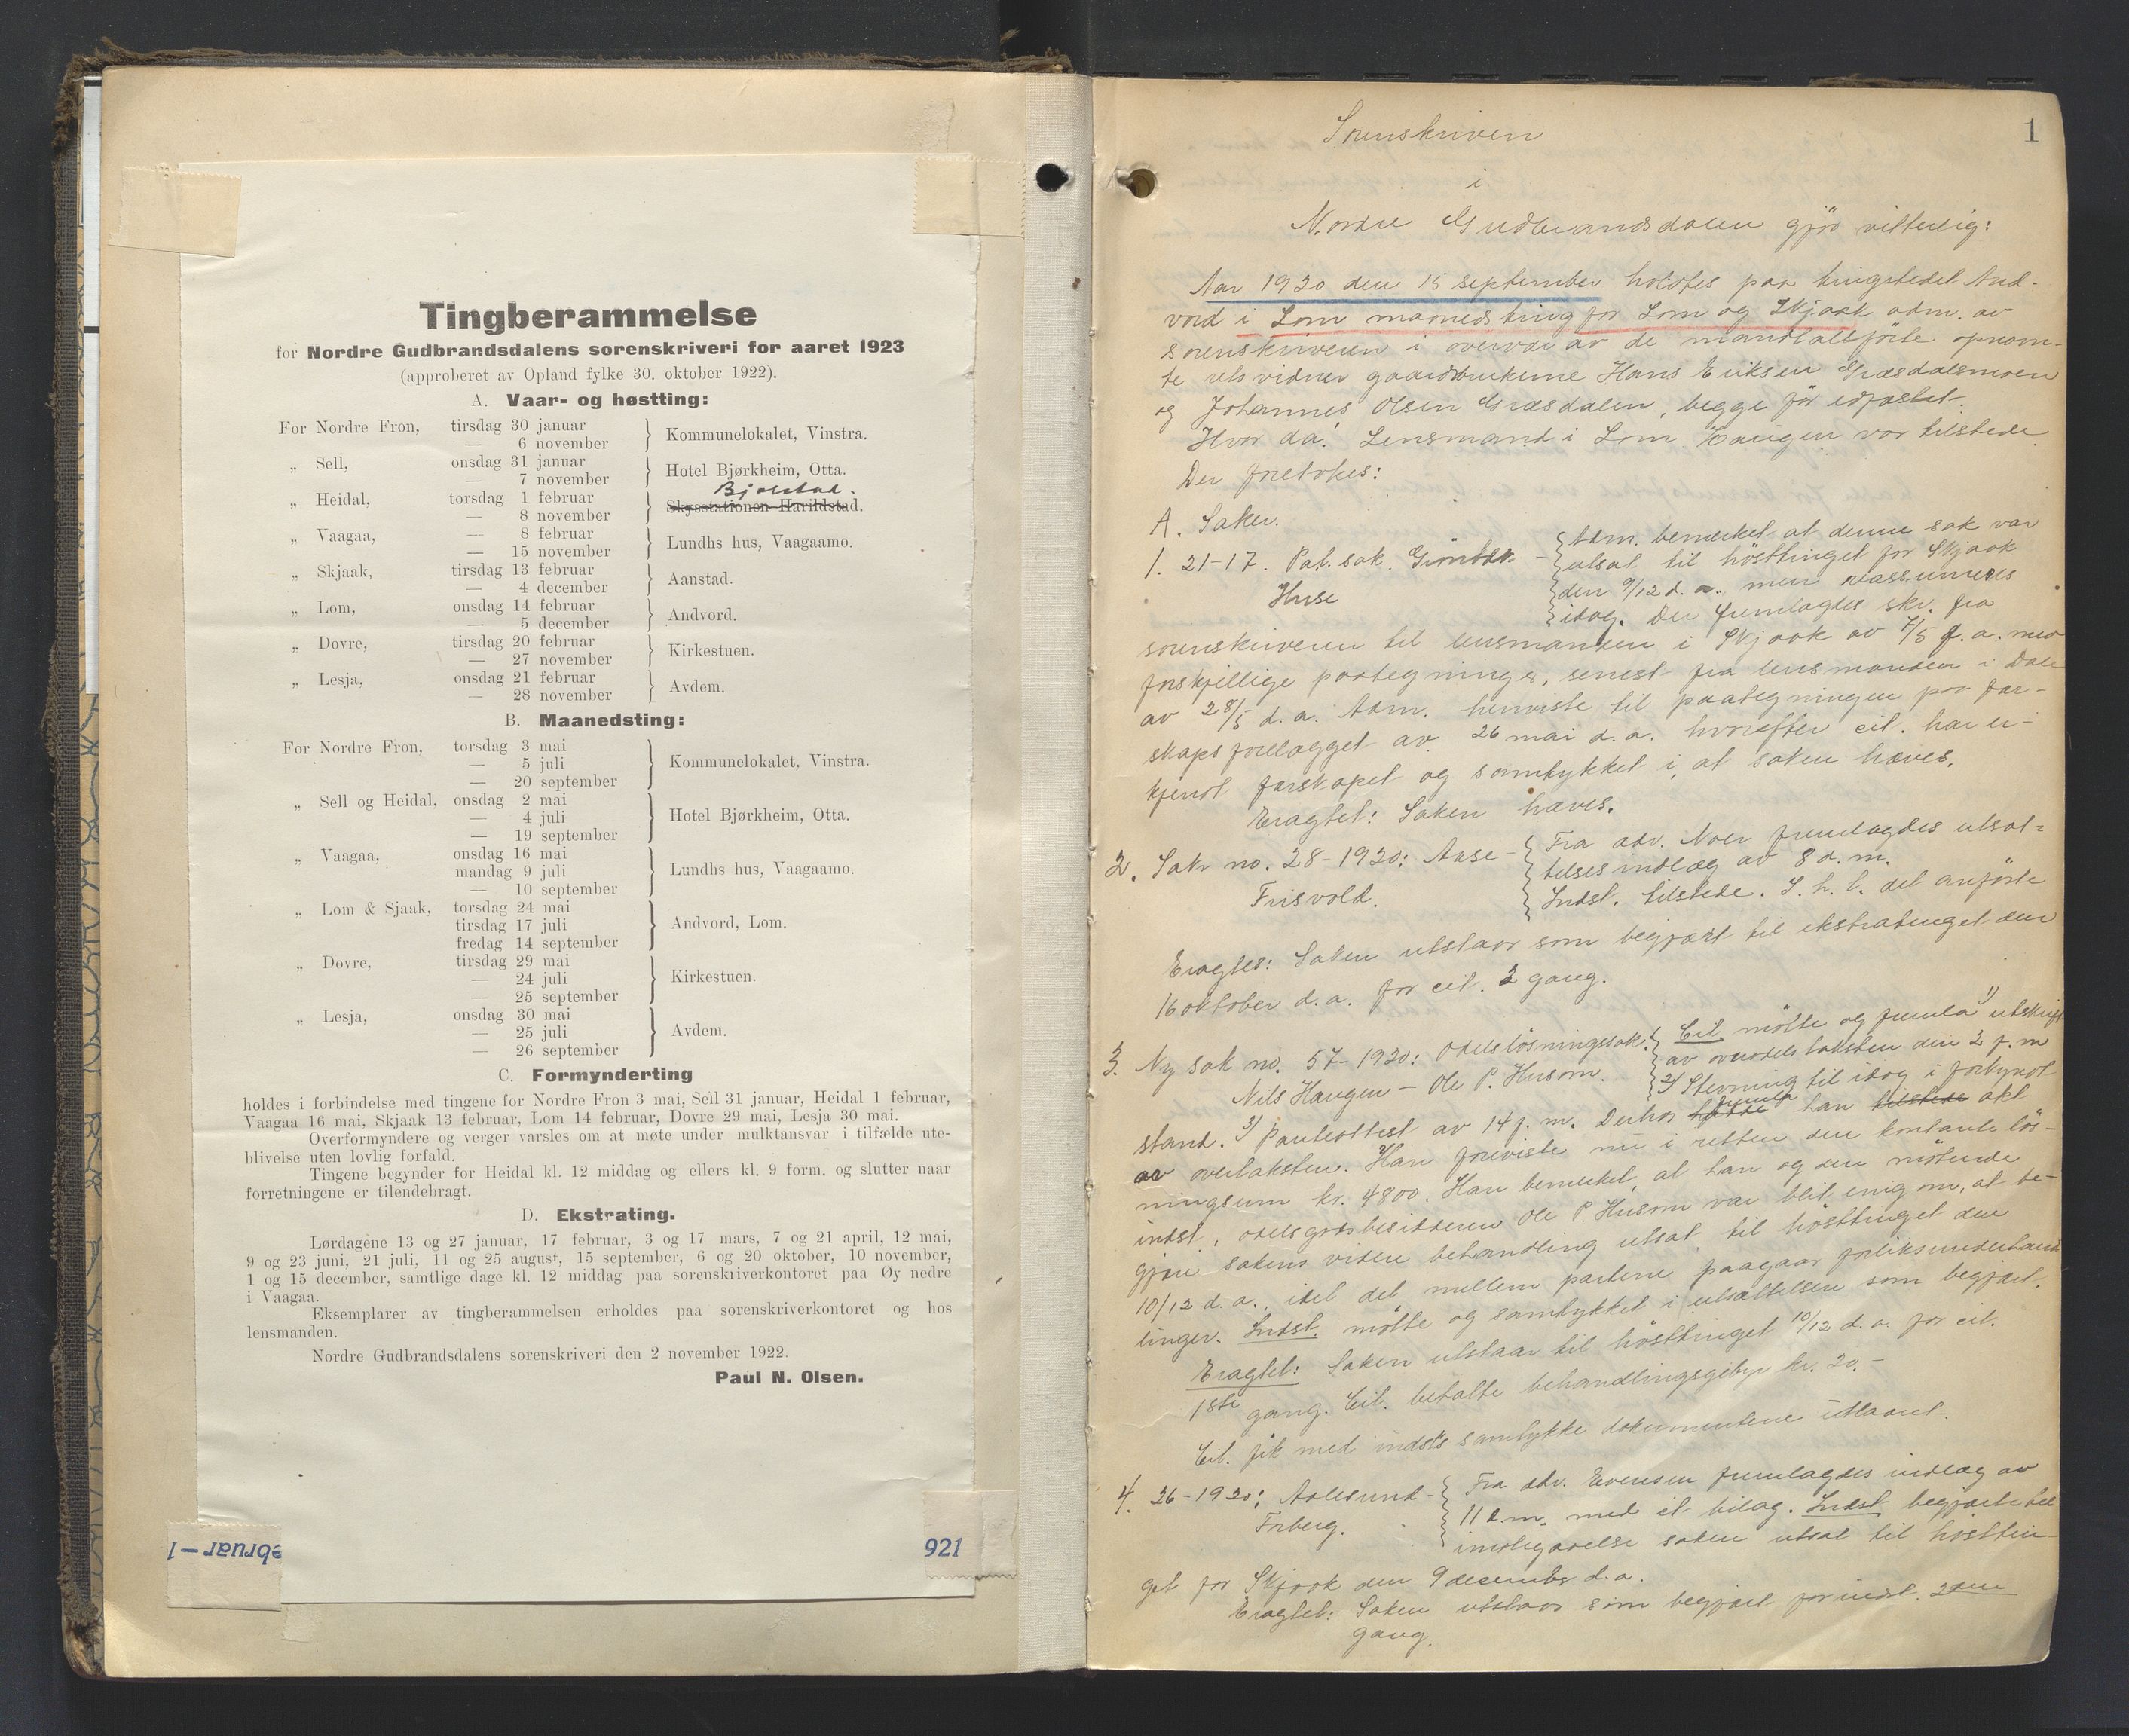 Tingberammelse
for Nordre Gudbrandsdalens sorenskriveri for aaret 1923
(approberet av Opland fylke 30. oktober 1922).
A. Vaar- og høstting:
For Nordre Fron, tirsdag 30 januar
— 6 november } Kommunelokalet, Vinstra.
„ Sell, onsdag 31 januar
— 7 november } Hotel Bjørkheim, Otta.
Bjølstad.
„ Heidal, torsdag 1 februar
— 8 november } Skysstationen Harildstad.
„ Vaagaa, — 8 februar
— 15 november } Lundhs hus, Vaagaamo.
„ Skjaak, tirsdag 13 februar
— 4 december } Aanstad.
„ Lom, onsdag 14 februar
— 5 december } Andvord.
„ Dovre, tirsdag 20 februar
— 27 november } Kirkestuen.
„ Lesja, onsdag 21 februar
— 28 november } Avdem.
B. Maanedsting:
For Nordre Fron, torsdag 3 mai
— 5 juli } Kommunelokalet, Vinstra.
— 20 september
„ Sell og Heidal, onsdag 2 mai
— 4 juli } Hotel Bjørkheim, Otta.
— 19 september
„ Vaagaa, onsdag 16 mai
mandag 9 juli } Lundhs hus, Vaagaamo.
— 10 september
„ Lom & Sjaak, torsdag 24 mai
tirsdag 17 juli } Andvord, Lom.
fredag 14 september
„ Dovre, tirsdag 29 mai
— 24 juli } Kirkestuen.
— 25 september
„ Lesja, onsdag 30 mai
— 25 juli } Avdem.
— 26 september
C. Formynderting
holdes i forbindelse med tingene for Nordre Fron 3 mai, Sell 31 januar, Heidal 1 februar,
Vaagaa 16 mai, Skjaak 13 februar, Lom 14 februar, Dovre 29 mai, Lesja 30 mai.
Overformyndere og verger varsles om at møte under mulktansvar i tilfælde ute-
blivelse uten lovlig forfald.
Tingene begynder for Heidal kl. 12 middag og ellers kl. 9 form. og slutter naar
forretningene er tilendebragt.
D. Ekstrating.
Lørdagene 13 og 27 januar, 17 februar, 3 og 17 mars, 7 og 21 april, 12 mai,
9 og 23 juni, 21 juli, 11 og 25 august, 15 september, 6 og 20 oktober, 10 november,
1 og 15 december, samtlige dage kl. 12 middag paa sorenskriverkontoret paa Øy nedre
i Vaagaa.
Eksemplarer av tingberammelsen erholdes paa sorenskriverkontoret og hos
lensmanden.
Nordre Gudbrandsdalens sorenskriveri den 2 november 1922.
Paul N. Olsen.
ebruar—1
921
1
Sorenskriven
i
Nordre Gudbrandsdalen gjør vitterlig:
Aar 1920 den 15 september holdtes paa tingstedet And-
vord i Lom maanedsting for Lom og Skjaak adm. av
sorenskriveren i overvær av de mandtalsførte opnævn-
te retsvidner gaardbrukerne Hans Eriksen Græsdalsmoen
og Johannes Olsen Græsdalen, begge før edfæstet.
Hvor da! Lensmand i Lom, Haugen var tilstede.
Der foretokes:
A. Saker.
1. 21-17. Pat. sak. – { Adm. bemerket at denne sak var
Huse { utsat til høsttinget for Skjaak
{ den 9/12 d. a. men reassumeres
{ idag. Der fremlagdes skr. fra
sorenskriveren til lensmanden i Skjaak av 7/5 d. a. med
forskjellige paategninger, senest fra lensmanden i Dale
av 28/5 d. a. Adm. henviste til paategningen paa far-
skapsforelægget av 26 mai d. a. hvorefter cit. har er-
kjendt farskapet og samtykket i, at saken hæves.
Eragtet: Saken hæves.
2. Sak no. 28-1920: Aase – { Fra adv. Noer fremlagdes utsæt-
Frisvold. { telsesindlæg av 8 d. m.
{ Indst. tilstede. S. h. t. det anførte
Eragtes: Saken utstaar som begjært til ekstratinget den
16 oktober d. a. for cit. 2 gang.
3. Ny sak no. 57-1920: Odelsløsningssak. { Cit. møtte og fremla 1) utskrift
Nils Haugen – Ole P. Husom. { av overodelstaksten den 2 f. m
{ 2) Stevning til idag i forkyndt
stand. 3) Panteattest av 14 f. m. Derhos fremla han tilstede akt
av overtaksten. Han foreviste nu i retten den kontante løs-
ningsum kr. 4800. Han bemerket, at han og den møtende
indst., odelsgodsbesidderen Ole P. Husom var blit enig om, at be-
gjære sakens videre behandling utsat til høsttinget den
10/12 d. a., idet det mellem partene paagaar forliksunderhand-
linger. Indst. møtte og samtykket i utsættelsen som begjært.
Eragtet: Saken utstaar til høsttinget 10/12 d. a. for cit.
1ste gang. Cit. betalte behandlingsgebyr kr. 20.–
Cit. fik med indsts samtykke dokumentene utlaant.
4. 26-1920: Aalesund – { Fra adv. Evensen fremlagdes indlæg av
Forberg. { 11 d.m. med et bilag. Indst. begjærte til
{ imøtegaaelse saken utsat til høsttin-
get for Skjaak den 9 december d. a.
Eragtet: Saken utstaar som begjært for indst. 2den
gang.